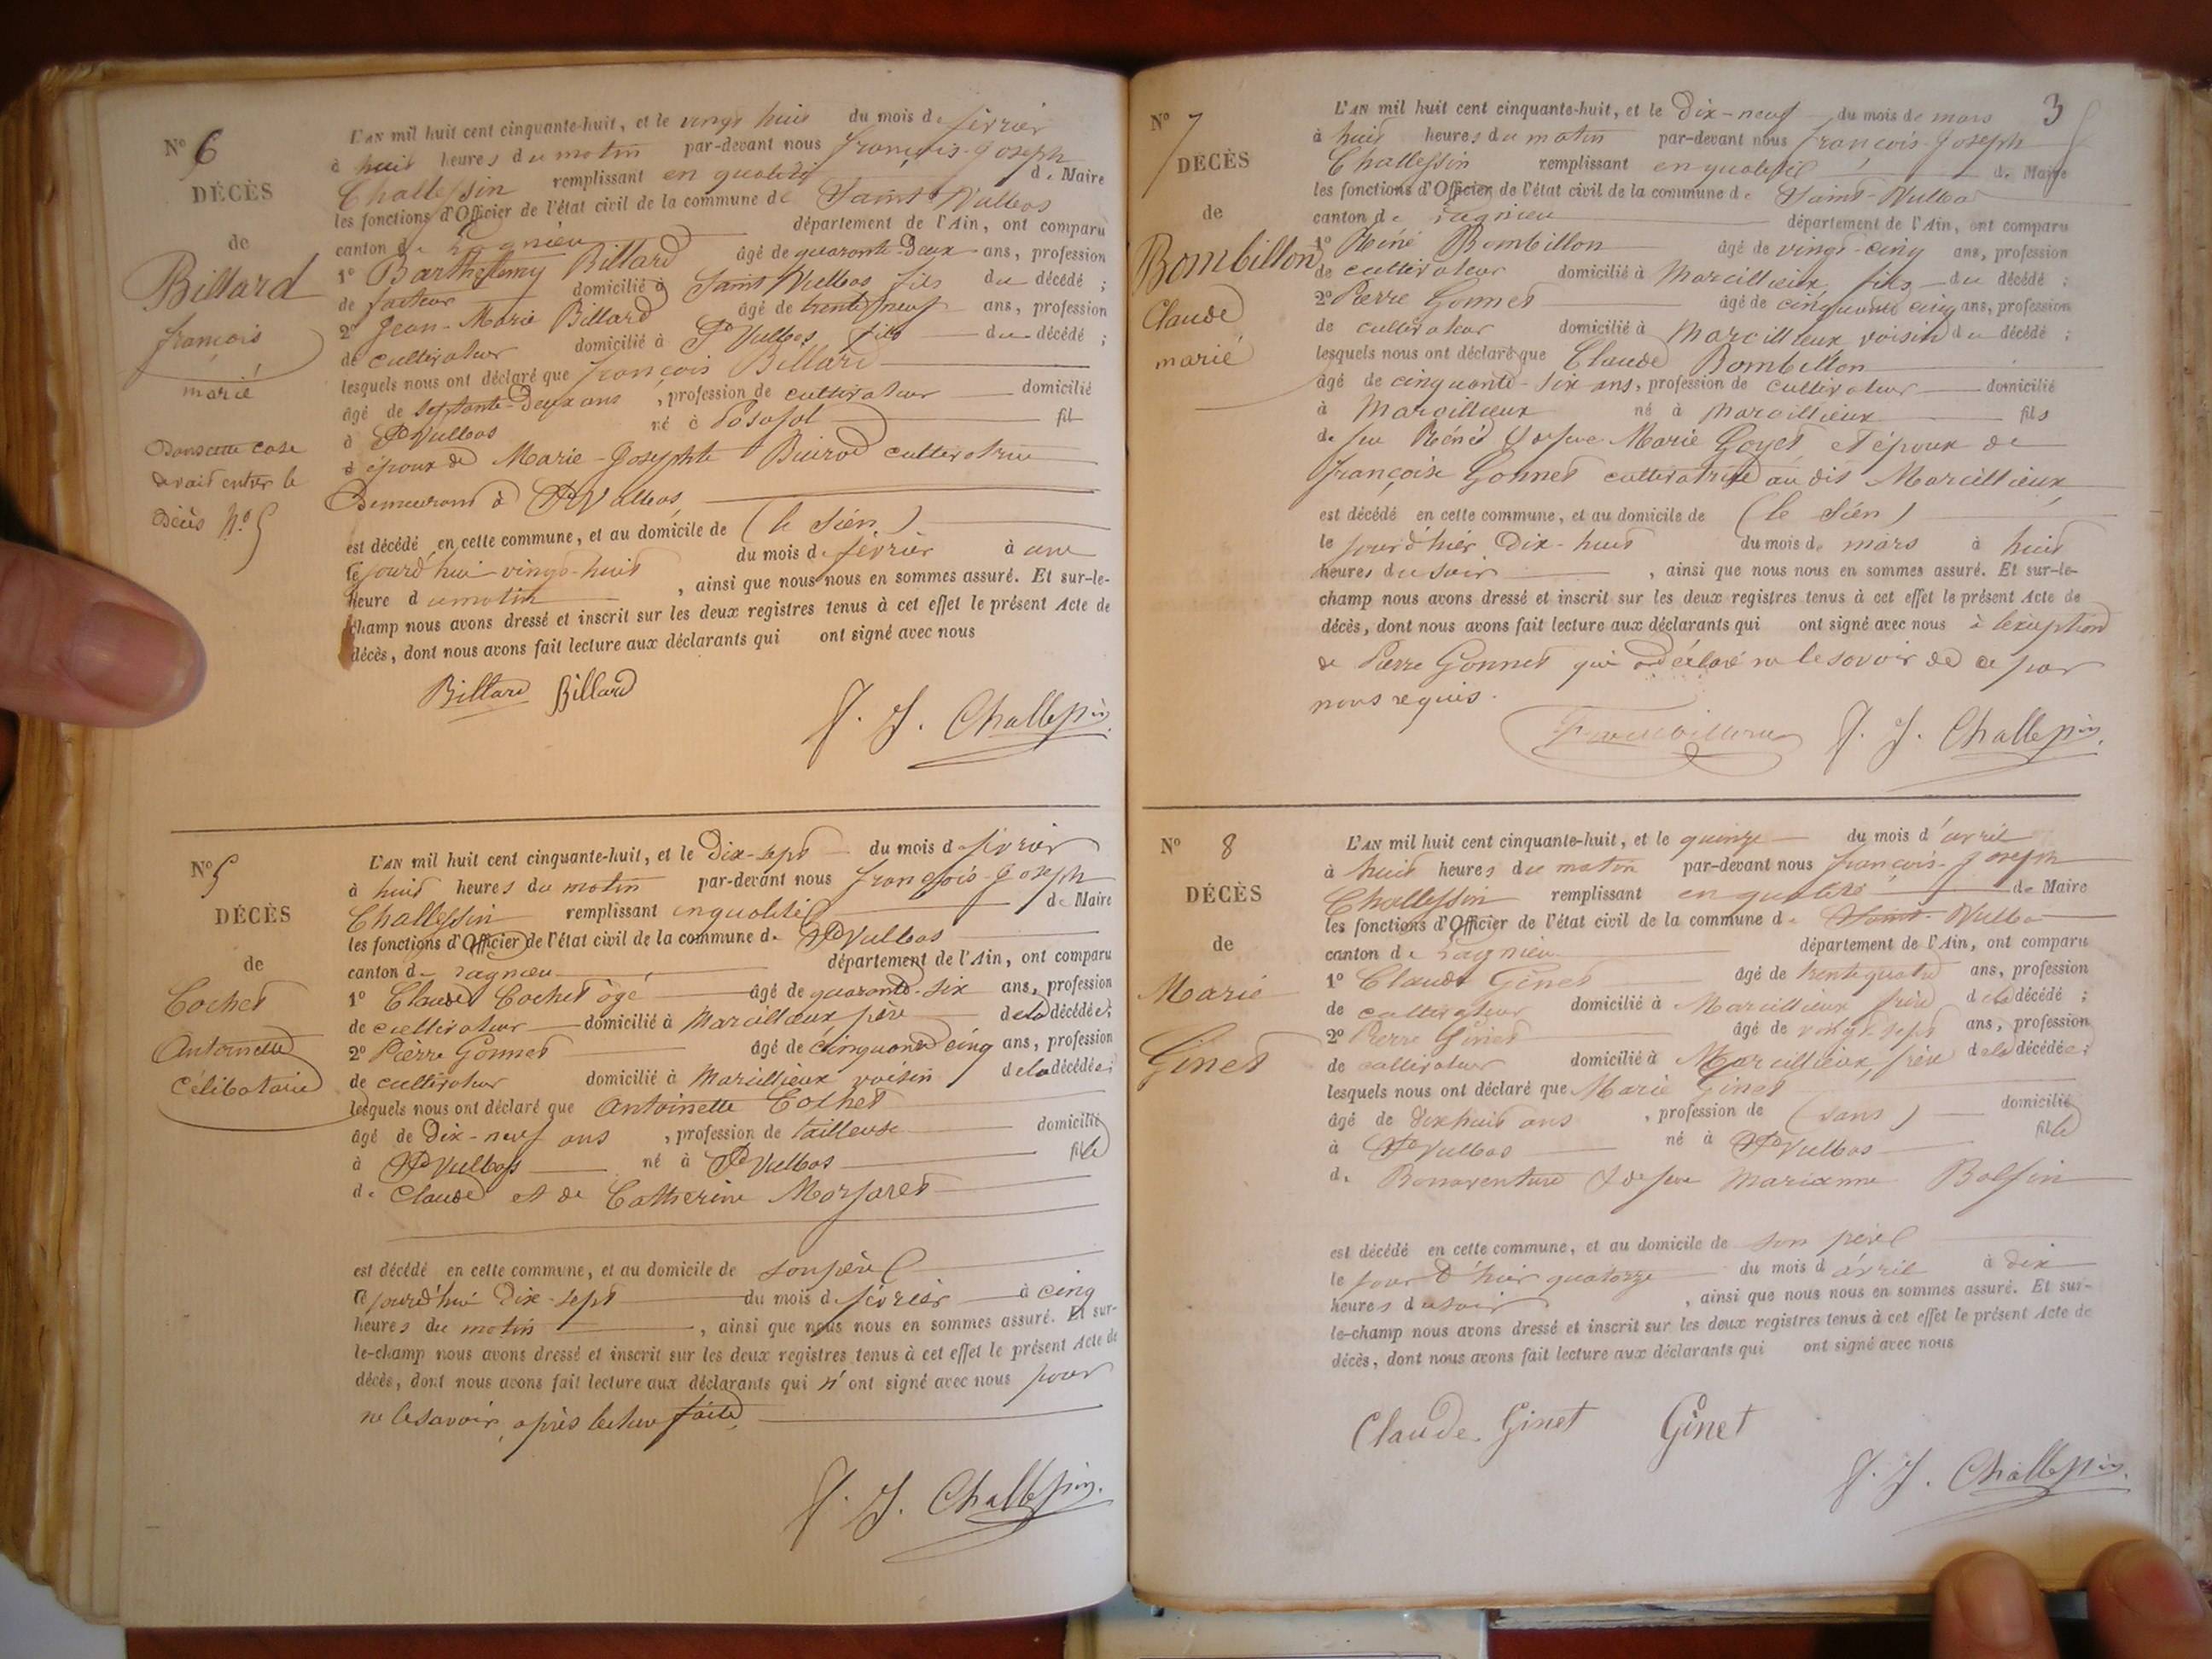 N° 6
DÉCÈS
de
Billard
françois
marié
Dans cette case
devait entrer le
Décès N° 5
L'AN mil huit cent cinquante-huit, et le vingt huit du mois de février
à huit heures du matin par-devant nous françois-Joseph
Challessin remplissant en qualité de Maire
les fonctions d'Officier de l'état civil de la commune de Saint-Vulbas
canton de Lagnieu département de l'Ain, ont comparu
1° Barthelemy Billard âgé de quarante-deux ans, profession
de facteur domicilié à Saint Vulbas fils du décédé ;
2° Jean-Marie Billard âgé de trente neuf ans, profession
de cultivateur domicilié à St Vulbas fils du décédé ;
lesquels nous ont déclaré que françois Billard
âgé de septante-deux ans, profession de cultivateur domicilié
à St Vulbas né à Posafol fil
d époux de Marie-Josephte cultivatrice
Demeurant à St Vulbas
est décédé en cette commune, et au domicile de (le sien)
le jourd'hui vingt-huit du mois de février à une
heure du matin, ainsi que nous nous en sommes assuré. Et sur-le-
champ nous avons dressé et inscrit sur les deux registres tenus à cet effet le présent Acte de
décès, dont nous avons fait lecture aux déclarants qui ont signé avec nous
Billard Billard
F. J. Challessin
N° 5
DÉCÈS
de
Cochet
Antoinette
Célibataire
L'AN mil huit cent cinquante-huit, et le Dix-sept du mois de février
à huit heures du matin par-devant nous françois-Joseph
Challessin remplissant en qualité de Maire
les fonctions d'Officier de l'état civil de la commune de St Vulbas
canton de Lagnieu département de l'Ain, ont comparu
1° Claude Cochet âgé âgé de quarante-six ans, profession
de cultivateur domicilié à Marcillieux père de la décédée ;
2° Pierre Gonnet âgé de cinquante cinq ans, profession
de cultivateur domicilié à Marcillieux voisin de la décédée ;
lesquels nous ont déclaré que Antoinette Cochet
âgé de Dix-neuf ans, profession de tailleuse domicilié
à St Vulbas né à St Vulbas fille
de Claude et de Catherine Marfaret
est décédé en cette commune, et au domicile de son père
le jourd'hui Dix-sept du mois de février à cinq
heures du matin, ainsi que nous nous en sommes assuré. Et sur-
le-champ nous avons dressé et inscrit sur les deux registres tenus à cet effet le présent Acte de
décès, dont nous avons fait lecture aux déclarants qui n'ont signé avec nous pour
ne le savoir, après lecture faite
F. J. Challessin
3
N° 7
DÉCÈS
de
Bombillon
Claude
marié
L'AN mil huit cent cinquante-huit, et le Dix-neuf du mois de mars
à huit heures du matin par-devant nous françois-Joseph
Challessin remplissant en qualité de Maire
les fonctions d'Officier de l'état civil de la commune de Saint-Vulbas
canton de Lagnieu département de l'Ain, ont comparu
1° Réné Bombillon âgé de vingt-cinq ans, profession
de cultivateur domicilié à Marcillieux, fils du décédé ;
2° Pierre Gonnet âgé de cinquante cinq ans, profession
de cultivateur domicilié à Marcillieux voisin du décédé ;
lesquels nous ont déclaré que Claude Bombillon
âgé de cinquante-six ans, profession de cultivateur domicilié
à Marcillieux né à Marcillieux fils
de feu Réné & de feue Marie Goyet et époux de
françoise Gonnet cultivatrice au dit Marcillieux
est décédé en cette commune, et au domicile de (le sien)
le jourd'hier Dix-huit du mois de mars à huit
heures du soir, ainsi que nous nous en sommes assuré. Et sur-le-
champ nous avons dressé et inscrit sur les deux registres tenus à cet effet le présent Acte de
décès, dont nous avons fait lecture aux déclarants qui ont signé avec nous à l'exeption
de Pierre Gonnet qui a déclaré ne le savoir de ce par
nous requis.
F. J. Challessin
N° 8
DÉCÈS
de
Marie
Ginet
L'AN mil huit cent cinquante-huit, et le quinze du mois d'avril
à huit heures du matin par-devant nous françois-Joseph
Challessin remplissant en qualité de Maire
les fonctions d'Officier de l'état civil de la commune de Saint-Vulbas
canton de Lagnieu département de l'Ain, ont comparu
1° Claude Ginet âgé de trente quatre ans, profession
de cultivateur domicilié à Marcillieux frère de la décédé ;
2° Pierre Ginet âgé de vingt-sept ans, profession
de cultivateur domicilié à Marcillieux, frère de la décédée ;
lesquels nous ont déclaré que Marie Ginet
âgé de dix huit ans, profession de (sans) domicilié
à St Vulbas né à St Vulbas fille
de Bonaventure & de feue Marianne Bolfin
est décédé en cette commune, et au domicile de son père
le jour d'hier quatorze du mois d'avril à dix
heures du soir, ainsi que nous nous en sommes assuré. Et sur-
le-champ nous avons dressé et inscrit sur les deux registres tenus à cet effet le présent Acte de
décès, dont nous avons fait lecture aux déclarants qui ont signé avec nous
Claude Ginet Ginet
F. J. Challessin